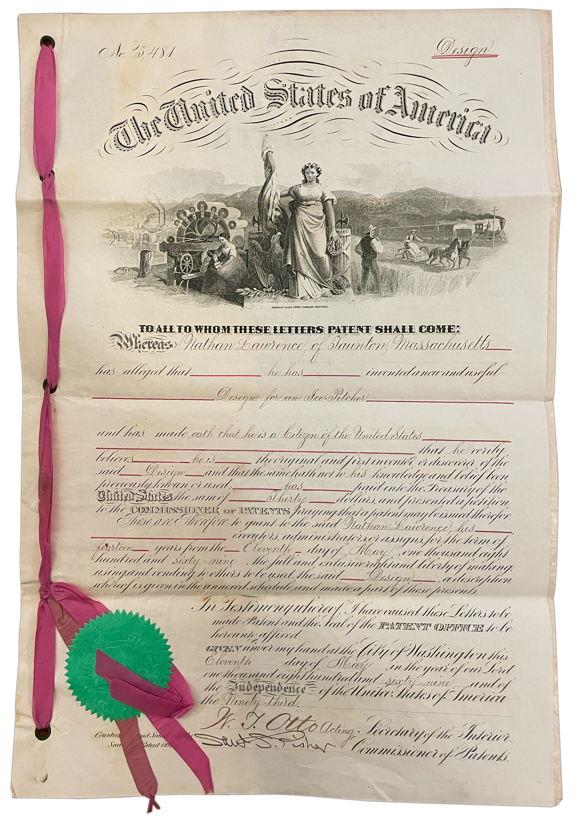 No 3,481
Design
The United States of America
TO ALL TO WHOM THESE LETTERS PATENT SHALL COME:
Whereas Nathan Lawrence, of Taunton, Massachusetts
has alleged that he has invented a new and useful
Design for an Ice-Pitcher,
and has made oath that he is a Citizen of the United States
that he verily
believes he is the original and first inventor or discoverer of the
said Design and that the same hath not to his knowledge and belief been
previously known or used has paid into the Treasury of the
United States the sum of Thirty dollars, and presented a petition
to the COMMISSIONER of PATENTS praying that a patent may be issued therefor.
These are Therefore to grant to the said Nathan Lawrence, his
executors, administrators or assigns for the term of
fourteen years from the Eleventh day of May, one thousand eight
hundred and sixty-nine the full and exclusive right and liberty of making,
using and vending to others to be used, the said Design, a description
whereof is given in the annexed schedule, and made a part of these presents.
In Testimony whereof, I have caused these Letters to be
made Patent and the Seal of the PATENT OFFICE to be
hereunto affixed.
GIVEN under my hand at the City of Washington this
Eleventh day of May, in the year of our Lord
one thousand eight hundred and sixty-nine, and of
the Independence of the United States of America
the Ninety-third.
W. T. Otto Acting Secretary of the Interior.
Fisher Commissioner of Patents.